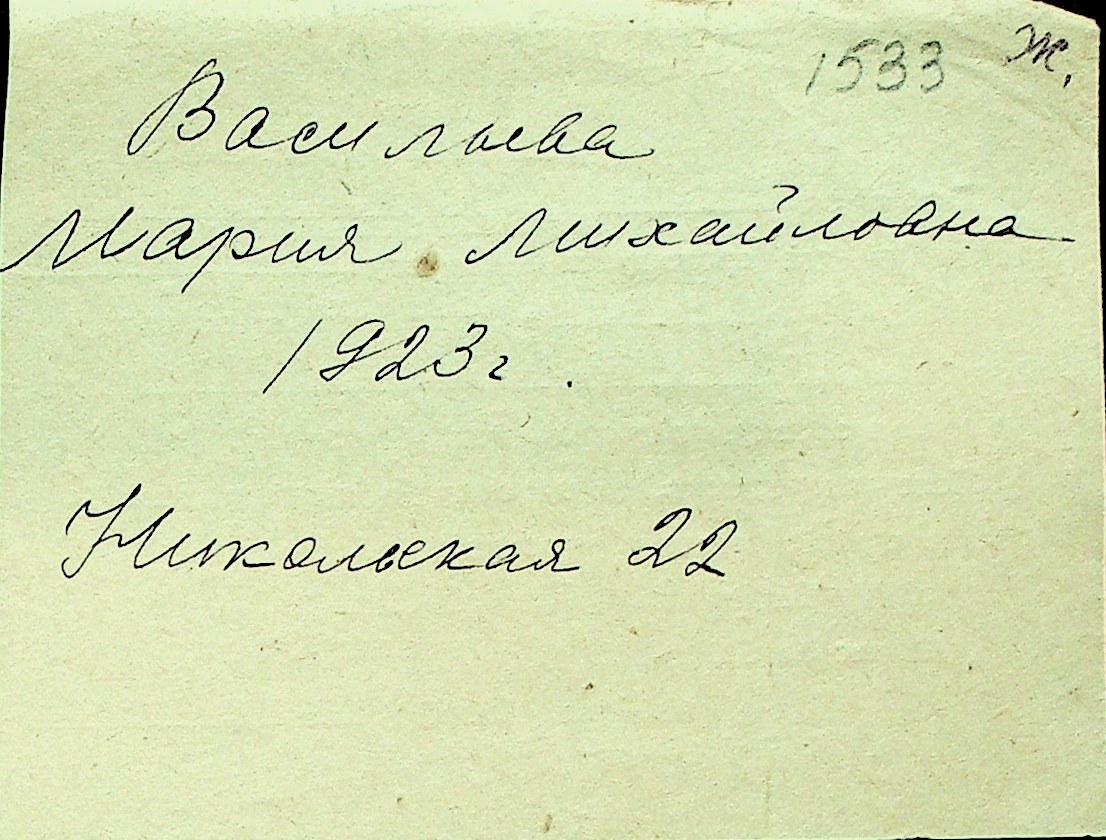 1533 Ж.
Васильева
Мария Михайловна
1923г.
Никольская 22